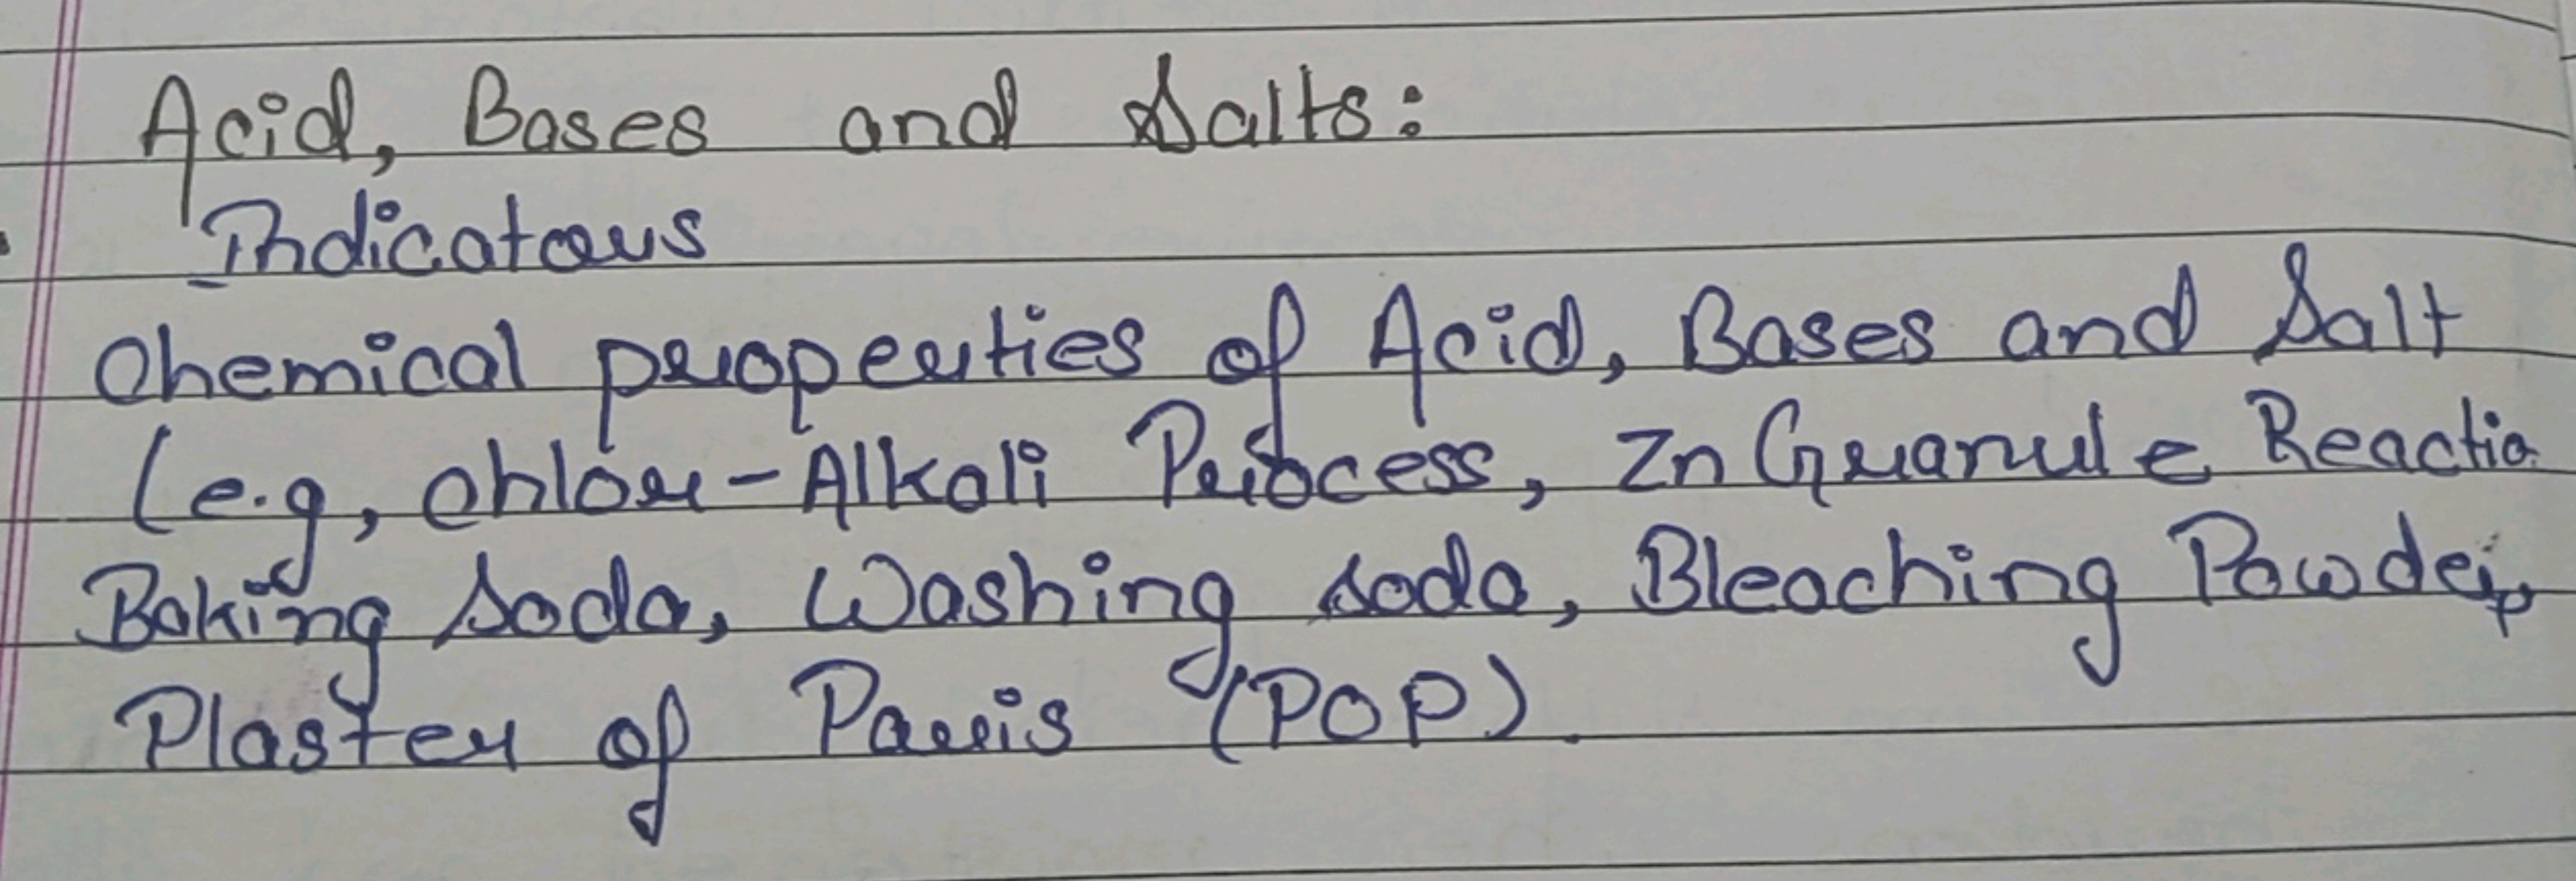 Acid, Bases and Salts:
Indicators
Chemical properties of Acid, Bases and Salt
(e.g, chlor-Alkali Process, Zn Granule Reactio
Baking soda, Washing soda, Bleaching Powder,
Plaster of Paris (POP).